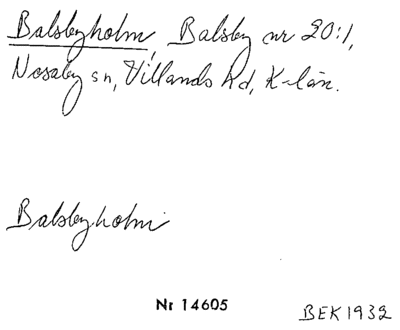 Balsbyholm, Balsby nr 20:1,
Nosaby sn, Villands hd, K-län.
Balsbyholm
Nr 14605
BEK1932